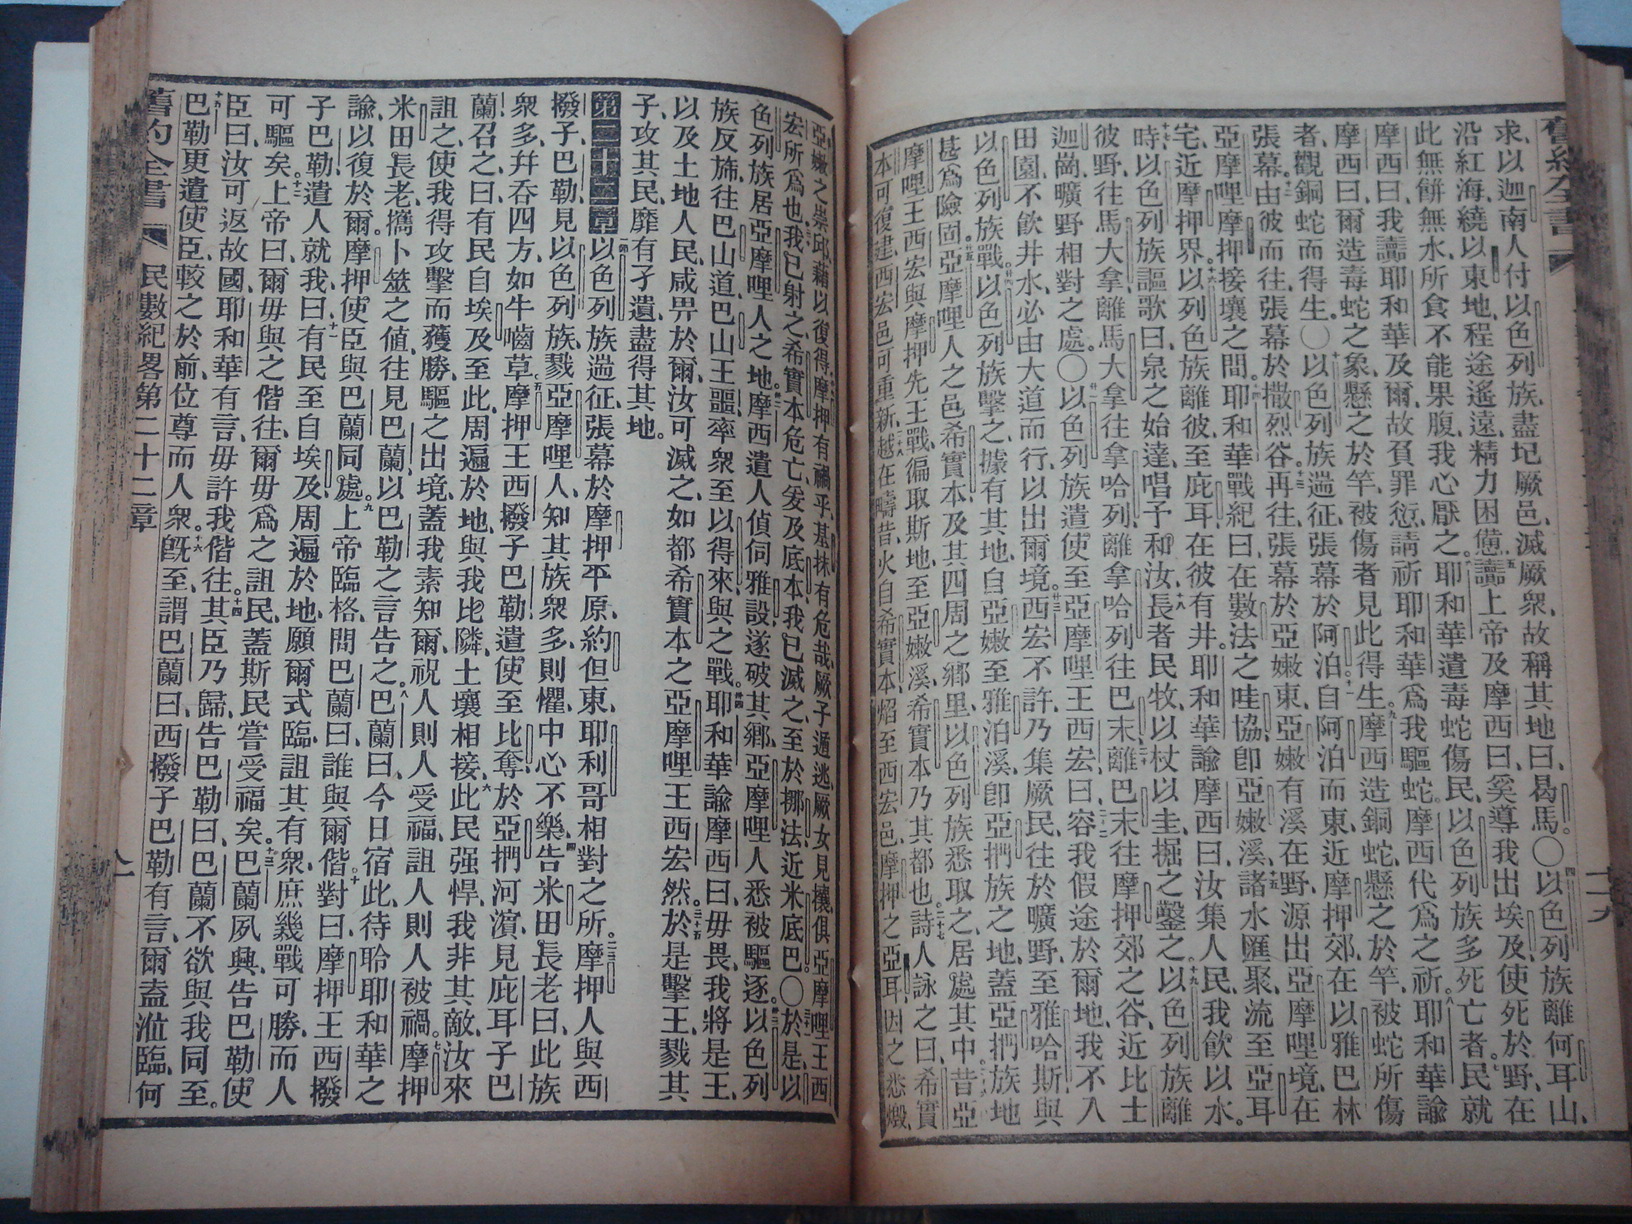 求、以迦南人付以色列族、盡圮厥邑、滅厥衆、故稱其地曰、曷馬。〇以色列族離何耳山、
沿紅海、繞以東地、程途遙遠、精力困憊、讟上帝及摩西曰、奚導我出埃及、使死於野、在
此無餅無水、所食不能果腹、我心厭之。耶和華遣毒蛇傷民、以色列族多死亡者。民就
摩西曰、我讟耶和華及爾、故負罪愆、請祈耶和華、爲我驅蛇。摩西代爲之祈。耶和華諭
摩西曰、爾造毒蛇之象、懸之於竿、被傷者見此得生。摩西造銅蛇、懸之於竿、被蛇所傷
者、觀銅蛇而得生。〇以色列族遄征、張幕於阿泊。自阿泊而東、近摩押郊、在以雅巴林
張幕、由彼而往、張幕於撒烈谷、再往、張幕於亞嫩東、亞嫩有溪在野、源出亞摩哩境、在
亞摩哩摩押接壤之間。耶和華戰紀曰、在數法之哇協、卽亞嫩溪、諸水匯聚、流至亞耳
宅、近摩押界。以色列族離彼、至庇耳、在彼有井。耶和華諭摩西曰、汝集人民、我飲以水。
時、以色列族謳歌曰、泉之始達、唱予和汝、長者民牧、以杖以圭、掘之鑿之。以色列族離
彼野、往馬大拿、離馬大拿、往拿哈列、離拿哈列、往巴末、離巴末、往摩押郊之谷、近比士
迦崗、曠野相對之處。〇以色列族遣使、至亞摩哩王西宏曰、容我假途於爾地、我不入
田園、不飲井水、必由大道而行、以出爾境。西宏不許、乃集厥民、往於曠野、至雅哈斯、與
以色列族戰。以色列族擊之、據有其地、自亞嫩至雅泊溪、卽亞捫族之地、蓋亞捫族地
甚爲險固。亞摩哩人之邑、希實本、及其四周之鄉里、以色列族悉取之、居處其中。昔亞
摩哩王西宏、與摩押先王戰、徧取斯地、至亞嫩溪、希實本乃其都也。詩人詠之曰、希實
本可復建、西宏邑可重新、越在疇昔、火自希實本、焰至西宏邑、摩押之亞耳、因之悉燬、
亞嫩之崇邱、藉以復得。摩押有禍乎、基抹有危哉、厥子遁逃、厥女見攘、俱亞摩哩王西
宏所爲也。我已射之、希實本危亡、爰及底本、我已滅之、至於挪法、近米底巴。〇於是以
色列族居亞摩哩人之地。摩西遣人偵伺雅設、遂破其鄉、亞摩哩人悉被驅逐。以色列
族反旆、往巴山道、巴山王噩率衆至以得來、與之戰。耶和華諭摩西曰、毋畏、我將是王、
以及土地人民、咸畀於爾、汝可滅之、如都希實本之亞摩哩王西宏然。於是擊王、戮其
子、攻其民、靡有孑遺、盡得其地。
第二十二章 以色列族遄征、張幕於摩押平原、約但東、耶利哥相對之所。摩押人與西
撥子巴勒、見以色列族戮亞摩哩人、知其族衆多、則懼、中心不樂、告米田長老曰、此族
衆多、幷吞四方、如牛嚙草。摩押王西撥子巴勒遣使至比奪、於亞捫河濱、見庇耳子巴
蘭、召之曰、有民自埃及至此、周遍於地、與我比隣、土壤相接、此民强悍、我非其敵、汝來
詛之、使我得攻擊而獲勝、驅之出境、蓋我素知爾祝人則人受福、詛人則人被禍。摩押
米田長老、攜卜筮之値、往見巴蘭、以巴勒之言告之。巴蘭曰、今日宿此、待聆耶和華之
諭、以復於爾。摩押使臣與巴蘭同處。上帝臨格、問巴蘭曰、誰與爾偕。對曰、摩押王西撥
子巴勒、遣人就我曰、有民至自埃及、周遍於地、願爾式臨、詛其有衆、庶幾戰可勝、而人
可驅矣。上帝曰、爾毋與之偕往、爾毋爲之詛民、蓋斯民嘗受福矣。巴蘭夙興、告巴勒使
臣曰、汝可返故國、耶和華有言、毋許我偕往。其臣乃歸告巴勒曰、巴蘭不欲與我同至。
巴勒更遣使臣、較之於前、位尊而人衆。旣至、謂巴蘭曰、西撥子巴勒有言、爾盍涖臨、何
舊約全書 民數紀畧第二十二章